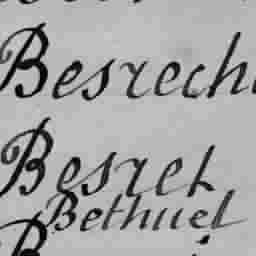 Besrech
Besret
Bethuel